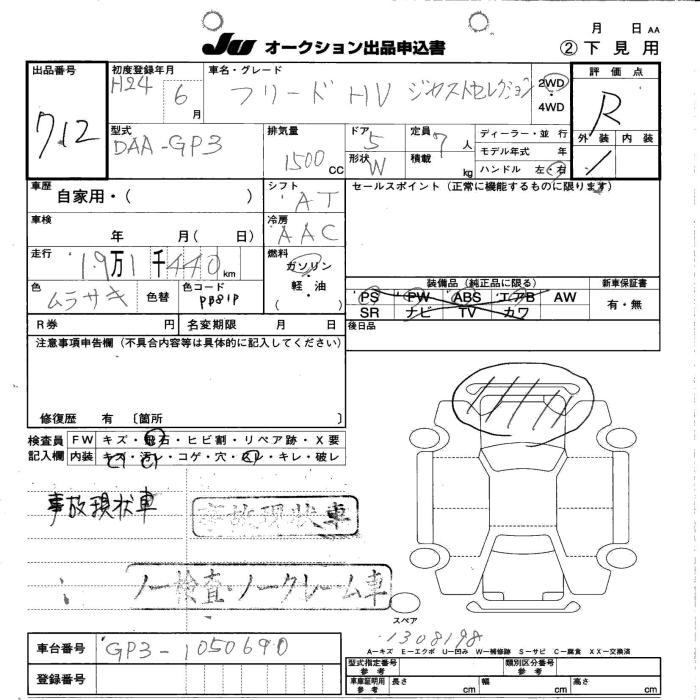 月 日 AA
JU オークション出品申込書
② 下見用
出品番号
712
初度登録年月
H24 6 月
車名・グレード
フリード HV ジャストセレクション
2WD
・
4WD
評価点
R
外装 内装
型式
DAA-GP3
排気量
1500 CC
ドア 5
形状 W
定員 7 人
積載 kg
ディーラー・並行
モデル年式 年
ハンドル 左・右
車歴
自家用・( )
シフト
AT
セールスポイント(正常に機能するものに限ります)
車検
年 月( 日)
冷房
AAC
走行
19万1千440km
燃料
ガソリン
・
軽・油
( )
色
ムラサキ
色替
色コード
PB81P
装備品(純正品に限る)
新車保証書
PS PW ABS エアB AW
SR ナビ TV カワ
有・無
R券 円
名変期限 月 日
後日品
注意事項申告欄(不具合内容等は具体的に記入してください)
修復歴 有 〔箇所 〕
検査員
記入欄
FW キズ・飛石・ヒビ割・リペア跡・X要
内装 キズ・汚レ・コゲ・穴・スレ・キレ・破レ
事故現状車
事故現状車
ノー検査・ノークレーム車
スペア
1308198
車台番号
GP3-1050690
登録番号
A―キズ E―エクボ U―凹み W―補修跡 S―サビ C―腐食 XX―交換済
型式指定番号
参考
類別区分番号
参考
車庫証明用
参考
長さ cm
幅 cm
高さ cm